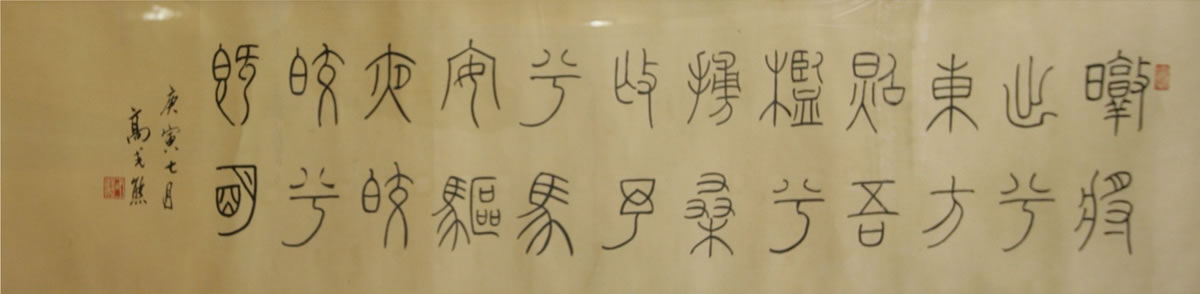 暾將
出兮
東方
照吾
檻兮
扶桑
撫予
兮馬
安驅
夜皎
皎兮
既明
庚寅七月
高式熊